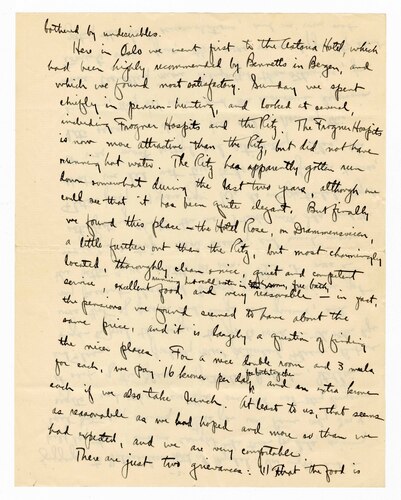 bothered by undesirables.
Here in Oslo we went first to the Astoria Hotel, which
had been highly recommended by Bennetts in Bergen, and
which we found most satisfactory. Sunday we spent
chiefly in pension-hunting, and looked at several
including Frogner Hospits and the Ritz. The Frogner Hospits
is now more attractive than the Ritz, but did not have
running hot water. The Ritz has apparently gotten run
down somewhat during the last two years, although one
could see that it has been quite elegant. But finally
we found this place - the Hotel Rose, on Drammensveien,
a little further out than the Ritz, but most charmingly
located, thoroughly clean & nice, quiet and competent
service, excellent food, running hot & cold water in room, free bath, and very reasonable - in fact,
the pensions we found seemed to have about the
same price, and it is largely a question of finding
the nicer places. For a nice double room and 3 meals
for each, we pay 16 kroner per day for both of us and an extra krone
each if we also take lunch. At least to us, that seems
as reasonable as we had hoped and more so than we
had expected, and we are very comfortable.
There are just two grievances: (1) that the food is